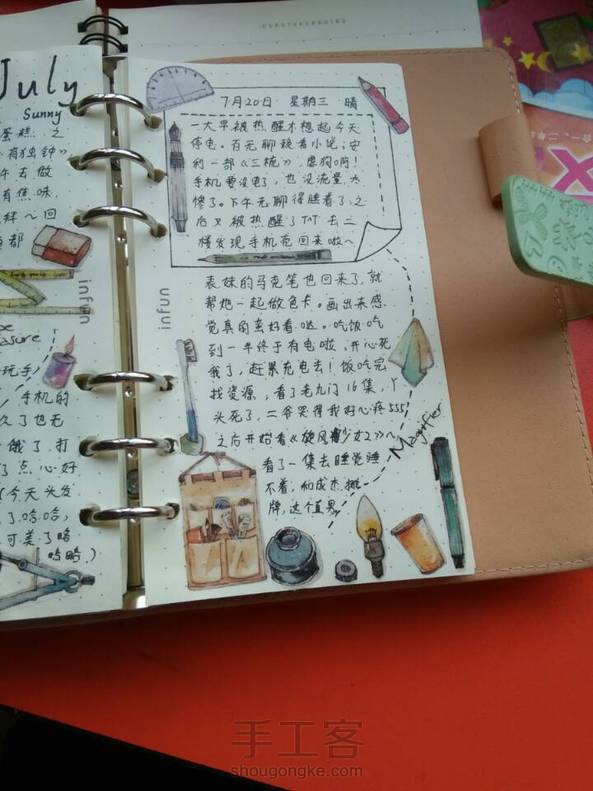 July
Sunny
蛋糕.之
有独钟》
午去做
有焦味.
妹～回
都
infun
easure
玩手
手机的
久了也无
饿了.打
了点心好
了今天头发.
了.哈哈,
可美了哈
哈哈.)
7月20日 星期三 晴
一大早被热醒才想起今天
停电。百无聊赖看小说,安
利一部《三栀》.虐狗啊!
手机要没电了,也没流量.太
惨了。下午无聊得睡着了.之
后又被热醒了TAT 去二
楼发现手机范回来啦～
infun
表妹的马克笔也回来了,就
帮她一起做色卡。画出来感
觉真的蛮好看哒。吃饭吃
到一半终于有电啦,开心死
我了,赶紧充电去!饭吃完
找资源,看了老九门16集,丫
头死了,二爷哭得我好心疼555
之后开始看《旋风少女2》～
Magnifier
看了一集去睡觉睡
不着.和成杰
牌,这个真
手工客
shougongke.com